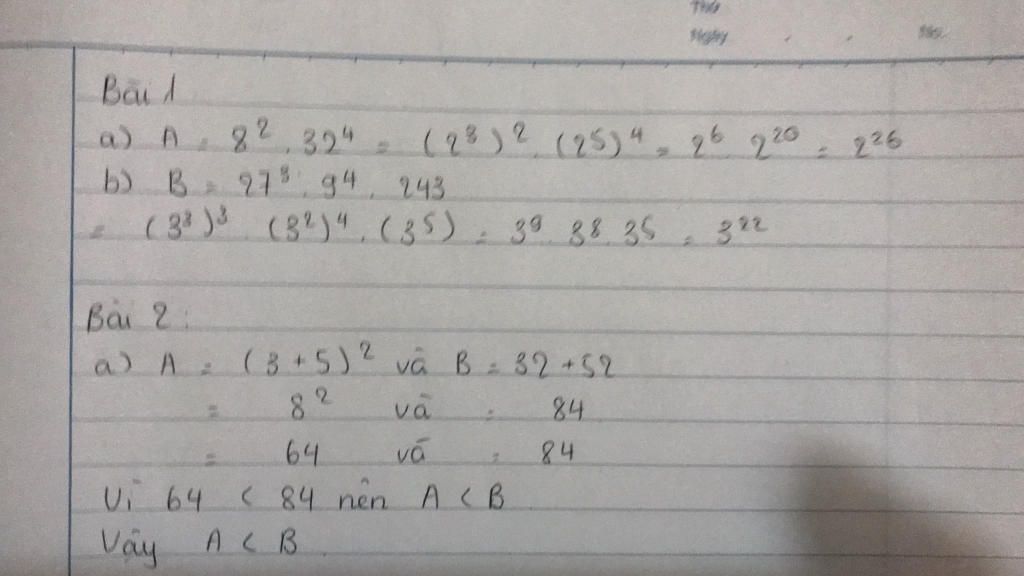 Thứ
Ngày . . No.
Bài 1
a) A = 8² . 32⁴ = (2³)² . (2⁵)⁴ = 2⁶ . 2²⁰ = 2²⁶
b) B = 27³ . 9⁴ . 243
= (3³)³ . (3²)⁴ . (3⁵) = 3⁹ . 3⁸ . 3⁵ = 3²²
Bài 2 :
a) A = (3 + 5)² và B = 32 + 52
= 8² và = 84
= 64 và = 84
Vì 64 < 84 nên A < B
Vậy A < B